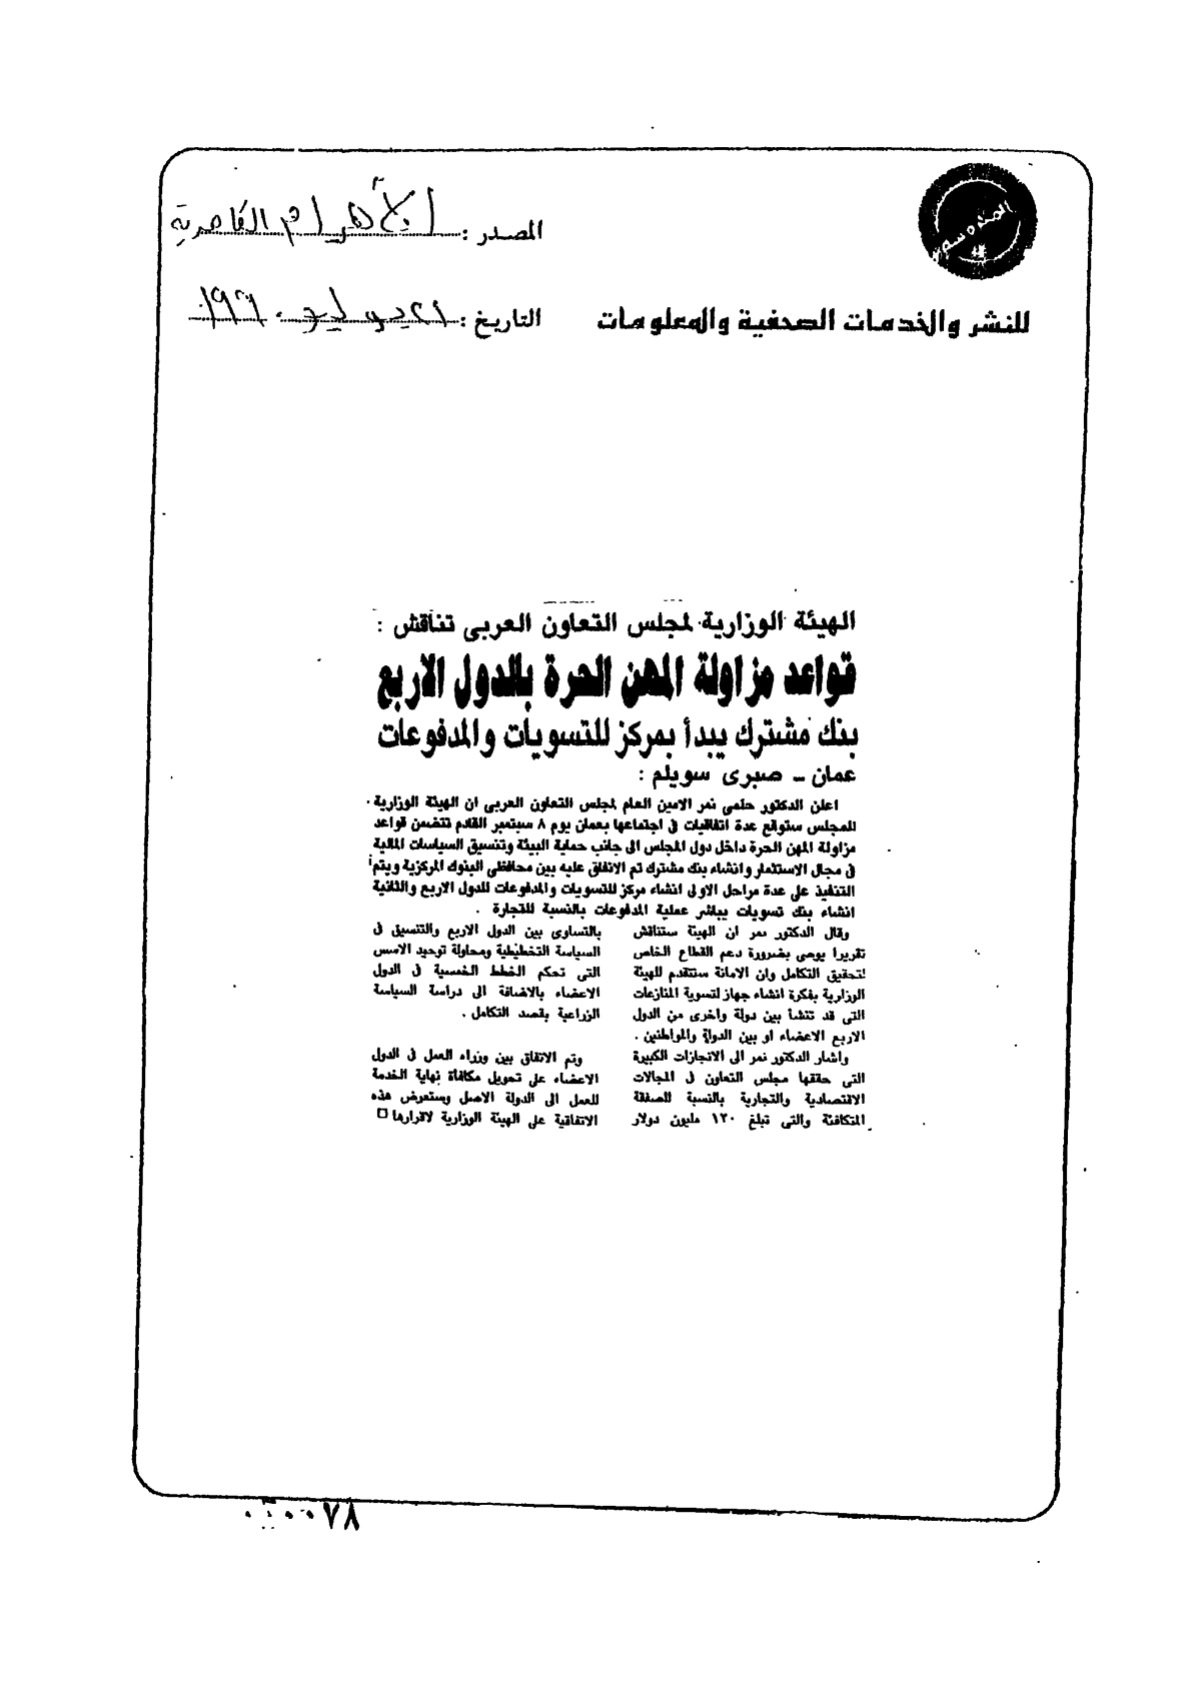 المصدر : الأهرام القاهرية
للنشر والخدمات الصحفية والمعلومات
التاريخ : يوليو
الهيئة الوزارية لمجلس التعاون العربى تناقش :
قواعد مزاولة المهن الحرة بالدول الاربع
بنك مشترك يبدأ بمركز للتسويات والمدفوعات
عمان - صبرى سويلم :
اعلن الدكتور حلمى نمر الامين العام لمجلس التعاون العربى ان الهيئة الوزارية
للمجلس ستوقع عدة اتفاقيات فى اجتماعها بعمان يوم ٨ سبتمبر القادم تتضمن قواعد
مزاولة المهن الحرة داخل دول المجلس الى جانب حماية البيئة وتنسيق السياسات المالية
فى مجال الاستثمار وانشاء بنك مشترك تم الاتفاق عليه بين محافظى البنوك المركزية ويتم
التنفيذ على عدة مراحل الاولى انشاء مركز للتسويات والمدفوعات للدول الاربع والثانية
انشاء بنك تسويات يباشر عملية المدفوعات بالنسبة للتجارة .
وقال الدكتور نمر ان الهيئة ستناقش
تقريرا يوصى بضرورة دعم القطاع الخاص
لتحقيق التكامل وان الامانة ستتقدم للهيئة
الوزارية بفكرة انشاء جهاز لتسوية المنازعات
التى قد تنشأ بين دولة واخرى من الدول
الاربع الاعضاء او بين الدولة والمواطنين .
واشار الدكتور نمر الى الانجازات الكبيرة
التى حققها مجلس التعاون فى المجالات
الاقتصادية والتجارية بالنسبة للصفقة
المتكافئة والتى تبلغ ١٢٠ مليون دولار
بالتساوى بين الدول الاربع والتنسيق فى
السياسة التخطيطية ومحاولة توحيد الاسس
التى تحكم الخطط الخمسية فى الدول
الاعضاء بالاضافة الى دراسة السياسة
الزراعية بقصد التكامل .
وتم الاتفاق بين وزراء العمل فى الدول
الاعضاء على تحويل مكافأة نهاية الخدمة
للعمل الى الدولة الاصل وستعرض هذه
الاتفاقية على الهيئة الوزارية لاقرارها □